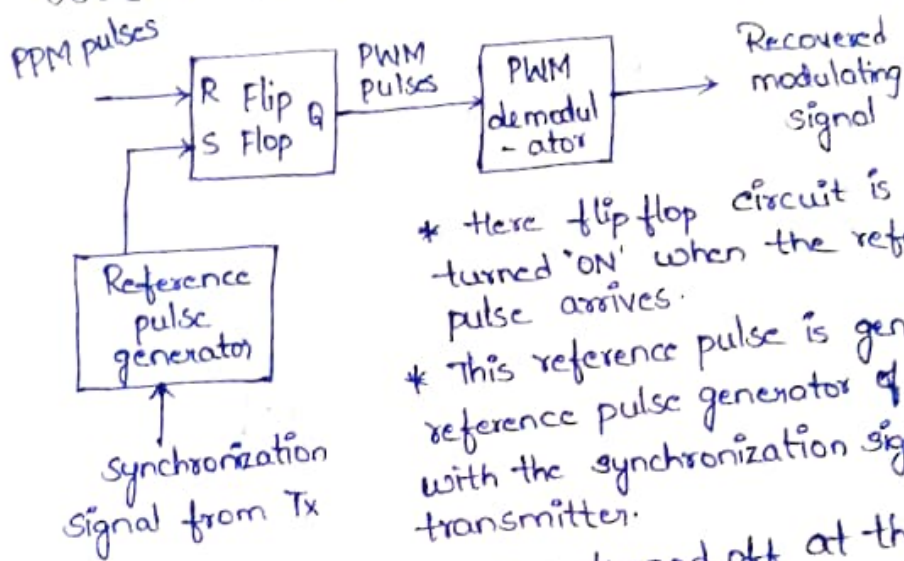 PPM pulses
R Flip Q
S Flop
PWM
pulses
PWM
demodul
- ator
Recovered
modulating
signal
Reference
pulse
generator
synchronization
signal from Tx
* Here flip flop circuit is
turned 'ON' when the ref
pulse arrives.
* This reference pulse is gen
reference pulse generator of
with the synchronization sig
transmitter.
off at th